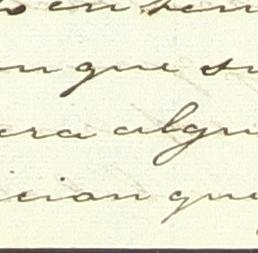 en sen
un que su
era algu
ician que